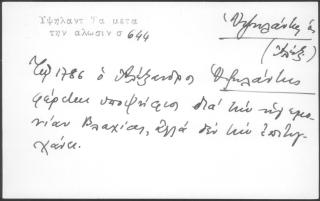 Υψηλαντ Τα μετα
την αλωσιν σ 644
Ὑψηλάντης
(Ἀλέξ.)
Τῷ 1786 ὁ Ἀλέξανδρος Ὑψηλάντης
φέρεται ὑποψήφιος διά τήν ἡγεμο
νίαν Βλαχίας, ἀλλά δέν τήν ἐπιτυγ
χάνει.